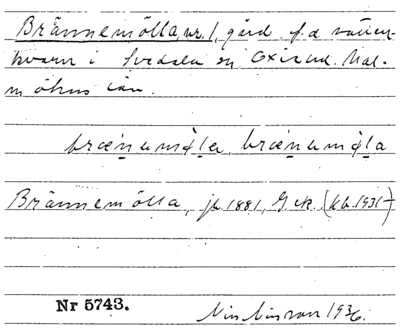 Brännemölla, nr. 1, gård, f.d vatten-
kvarn i Svedala sn Oxie hd. Mal-
möhus län.
brænemǫ̀la, brænemǫ̀la
Brännemölla, jb 1881, Gek (kb. 1931-)
Nr 5743.
1936.